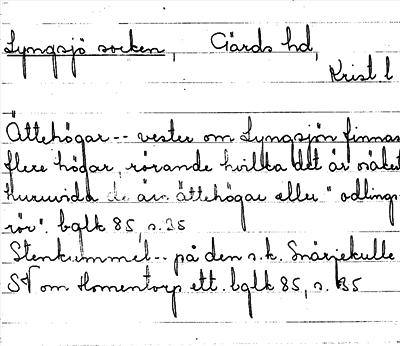 Lyngsjö socken, Gärds hd,
Krist l
Ättehögar -- vester om Lyngsjön finnas
flere högar, rörande hvilka det är osäkert
huruvida de äro ättehögar eller "odlings
rör". bglk 85, s. 35
Stenkummel -- på den s.k. Snärjekulle
SV om Homentorp ett. bglk 85, s. 35